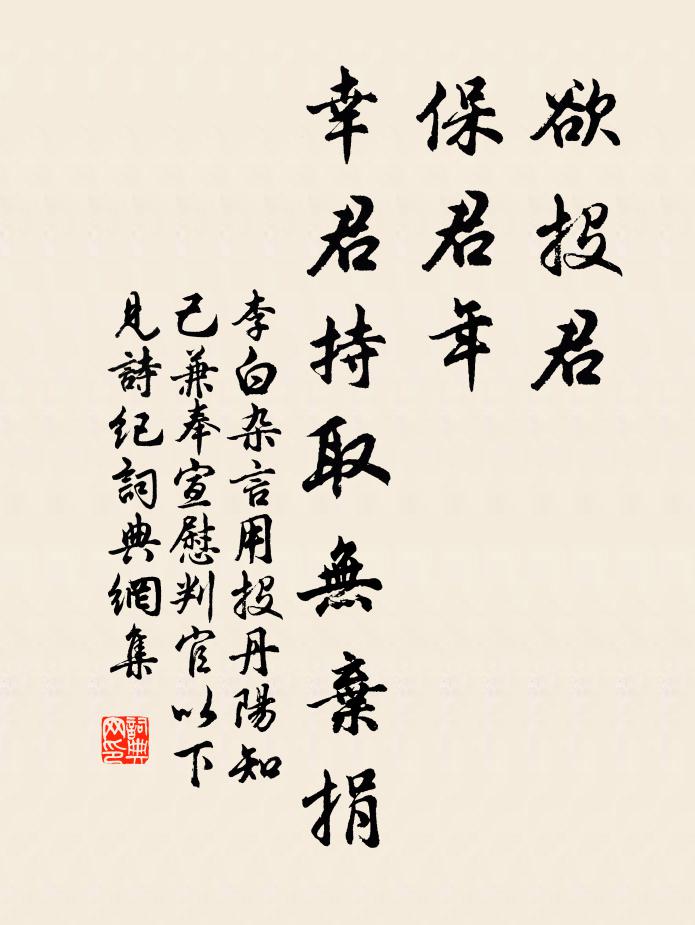 欲投君
保君年
幸君持取無棄捐
李白杂言用投丹陽知
己兼奉宣慰判官以下
見詩纪詞典網集
詞典
网印